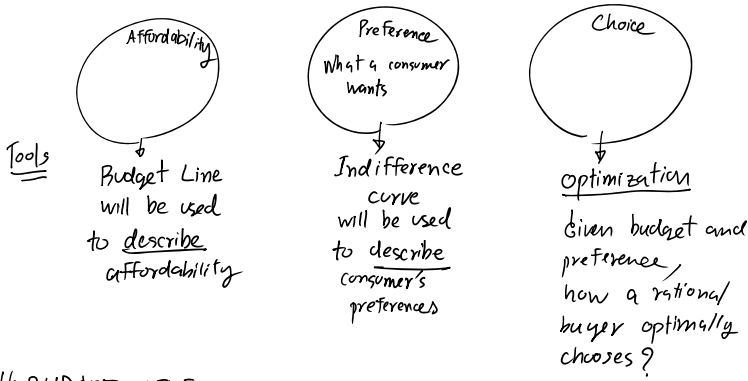 Affordability
Preference
What a consumer
wants
Choice
Tools
Budget Line
will be used
to describe
affordability
Indifference
curve
will be used
to describe
consumer's
preferences
optimization
Given budget and
preference,
how a rational
buyer optimally
chooses?